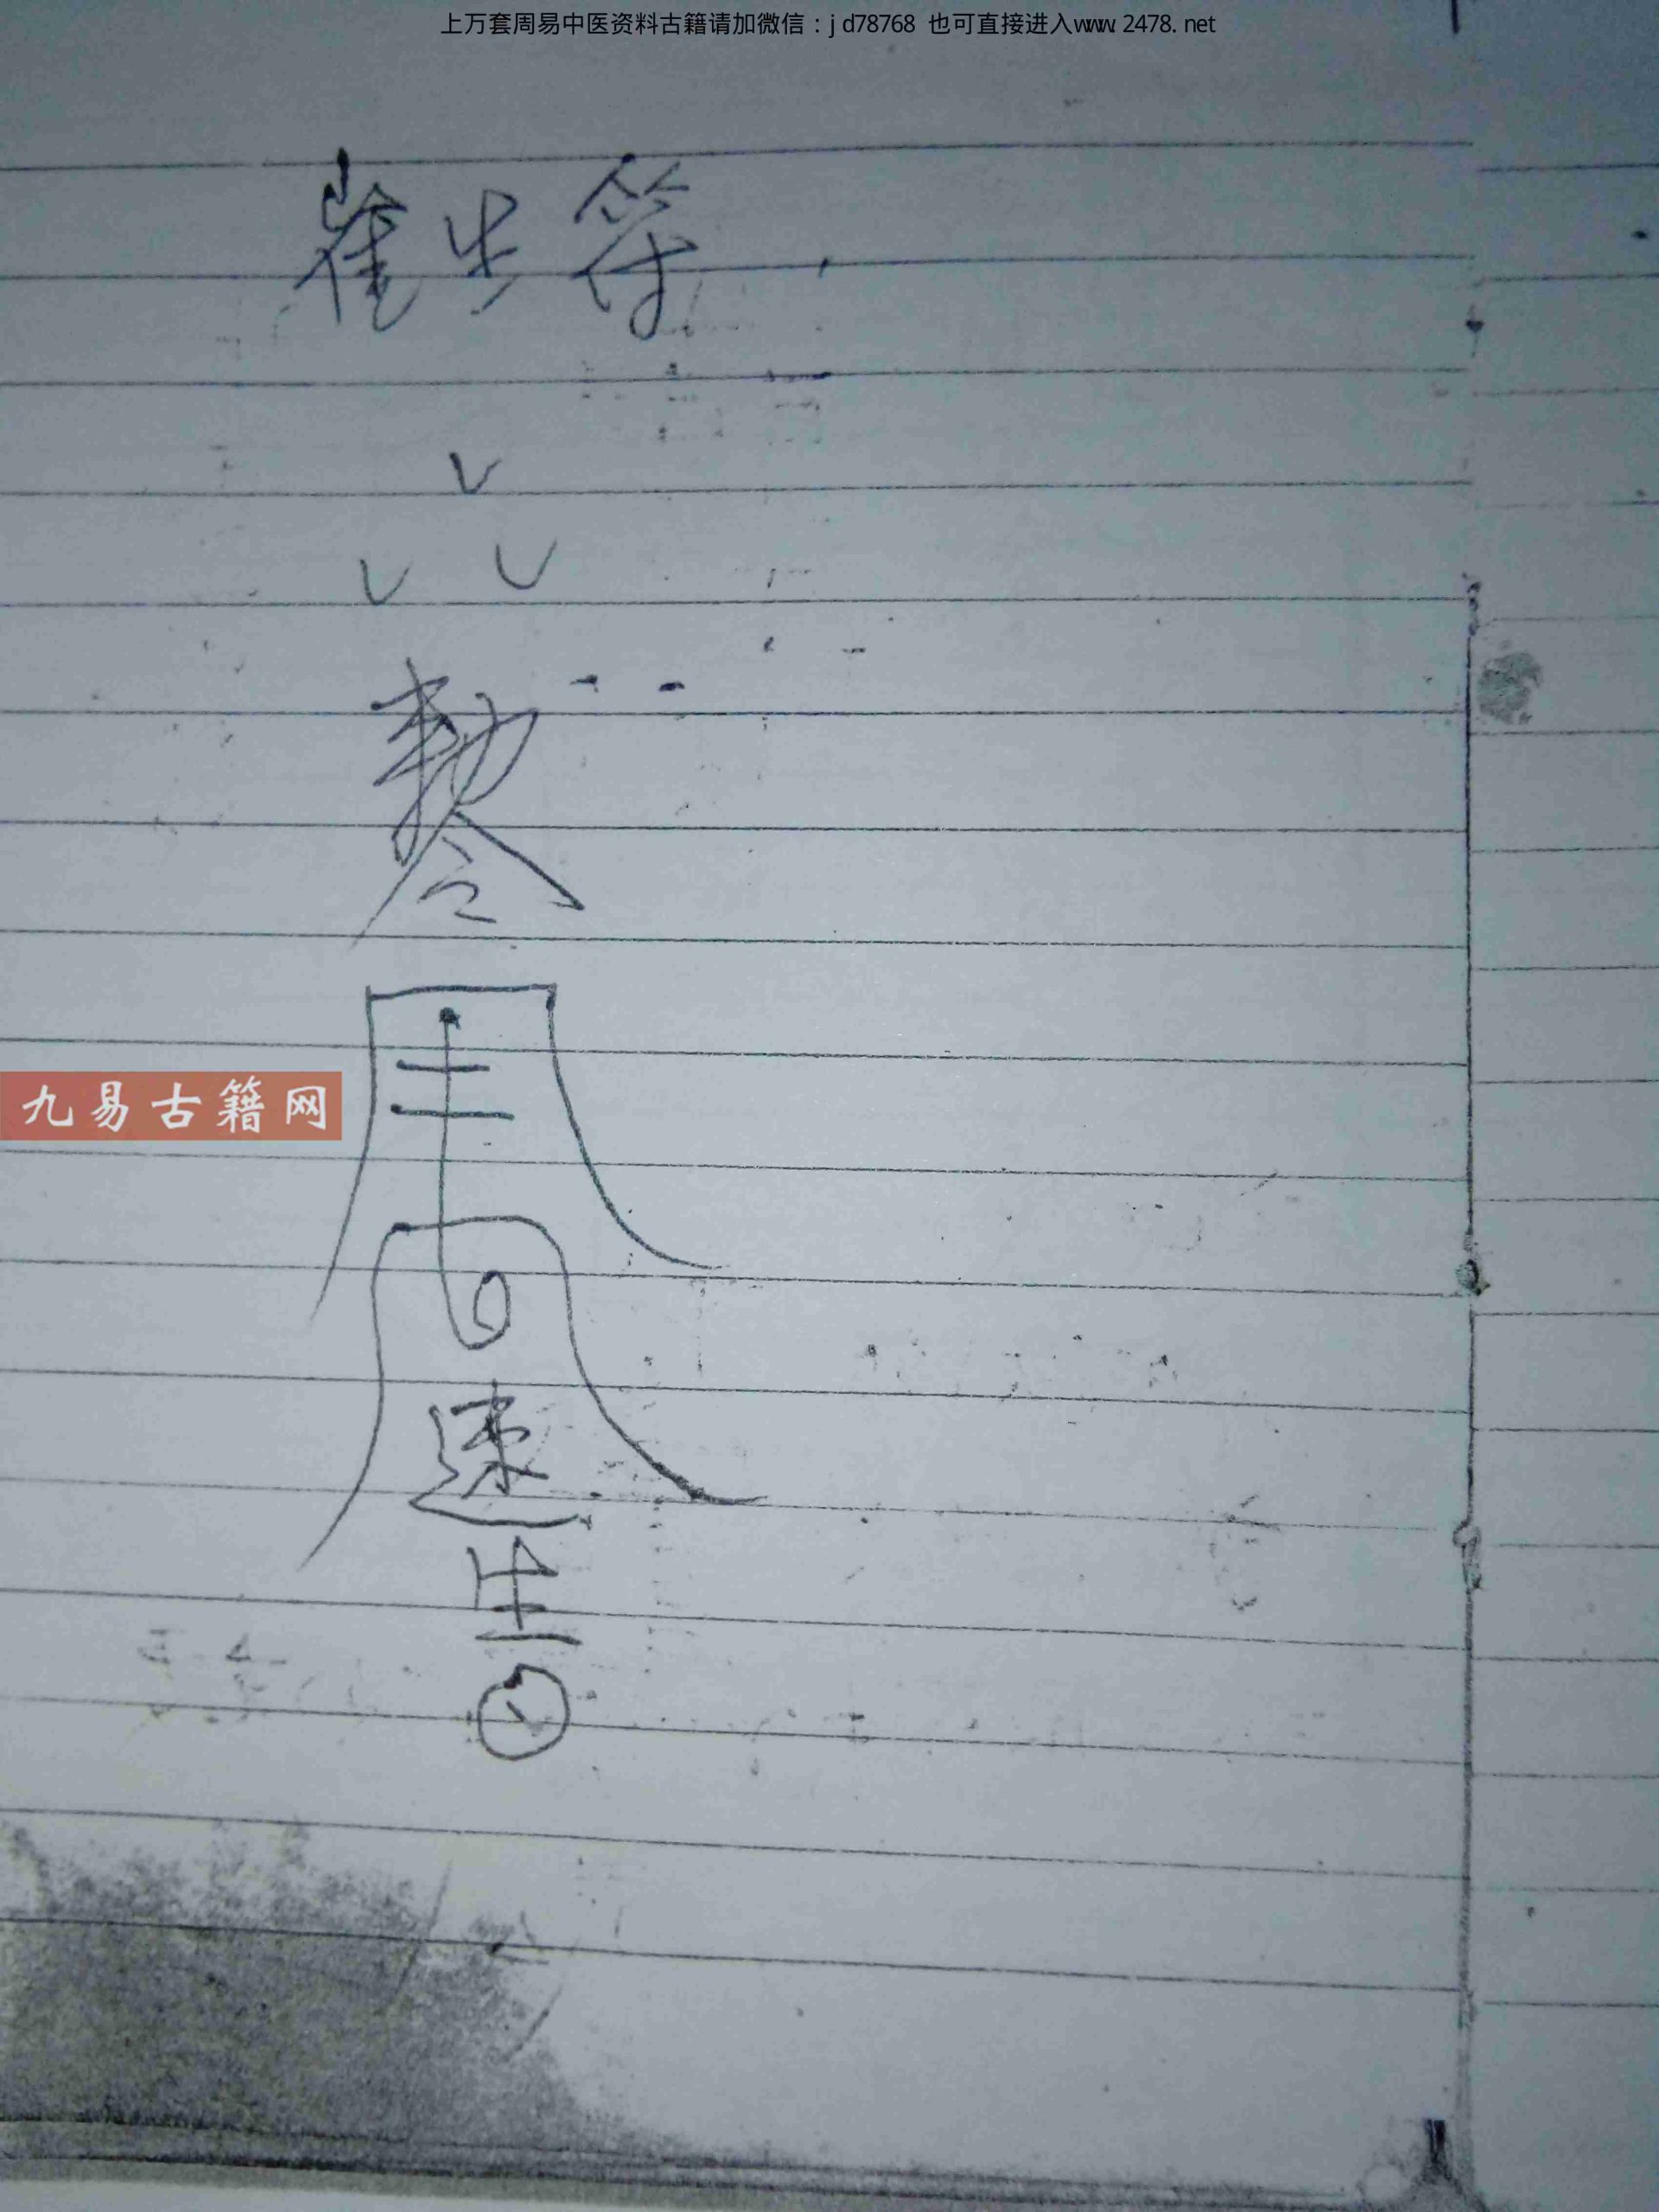 上万套周易中医资料古籍请加微信：jd78768 也可直接进入www.2478.net
生符
敕
令
九易古籍网
速
生